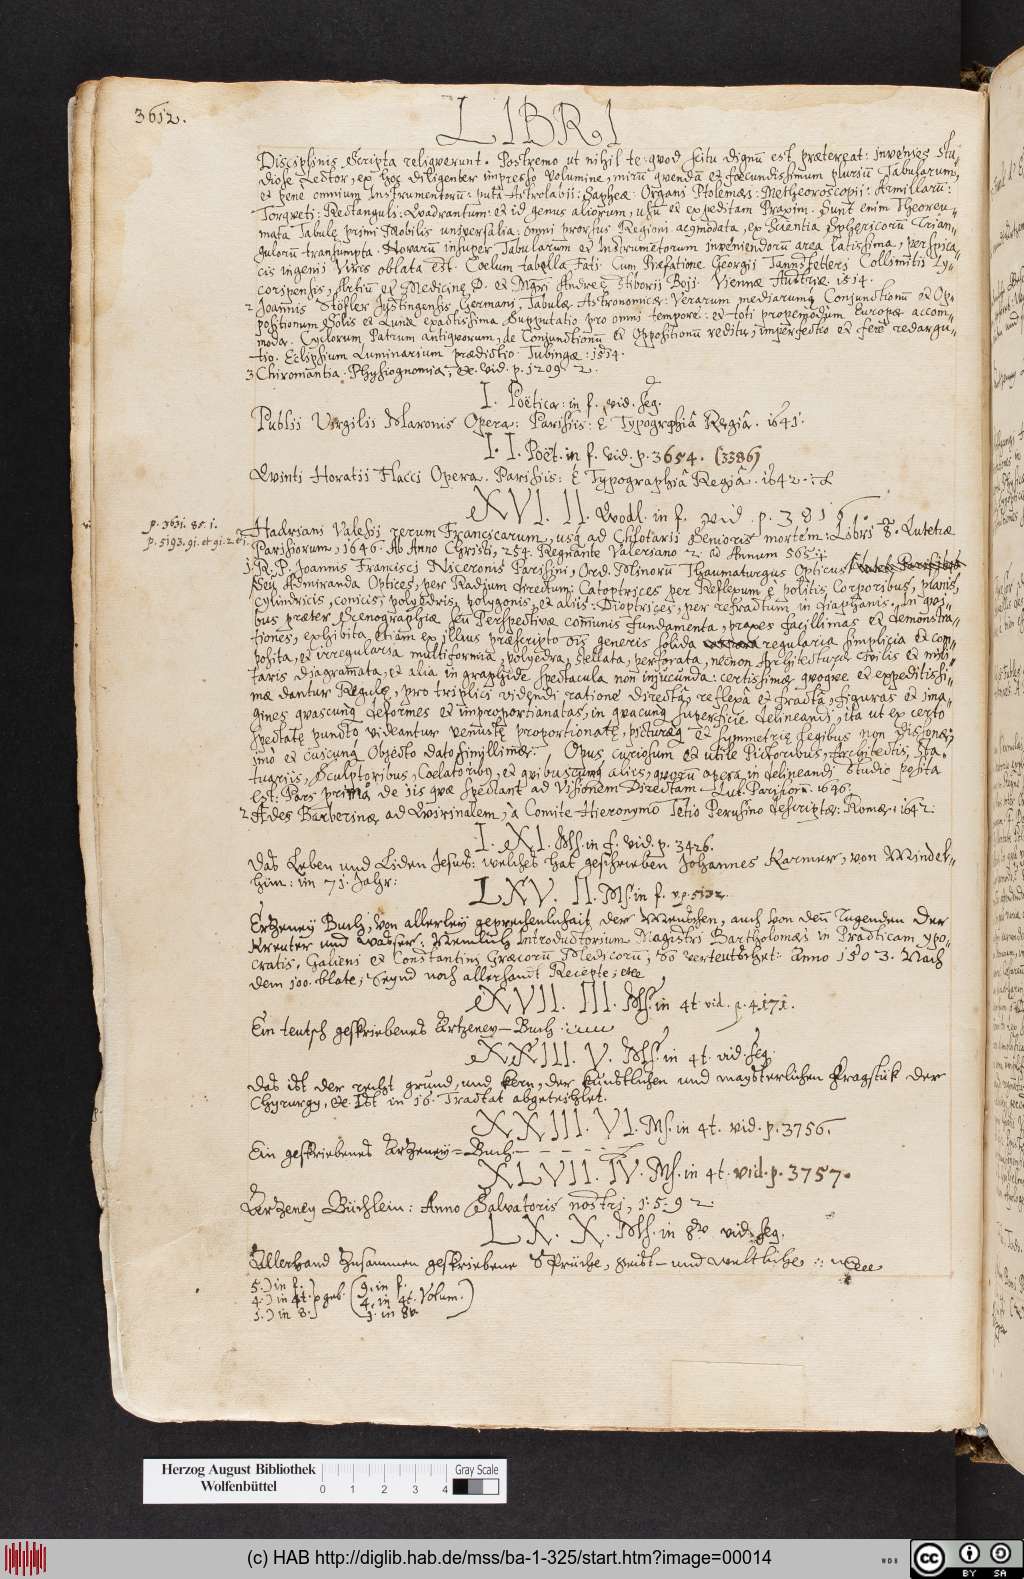 3612.
LIBRI
Disciplinis Scripta reliqverunt. Postremo ut nihil te qvod scitu dignū est prætereat: invenies stu-
diose Lector, ex hoc diligenter impresso volumine, mirū qvendā et fœcundissimum pluriū Tabularum,
et pene omnium Instrumentorū: putà Astrolabii: Sapheæ: Organi Ptolemæi: Metheoroscopii: Armillarū:
Torqveti: Rectanguli: Qvadrantum: et id genus aliorum, usū et expeditam Praxim. Sunt enim Theore-
mata Tabulę primi Mobilis universalia: omni prorsus Regioni acōmodata, ex Scientia Sphericorū Trian-
gulorū transumpta. Novarū insuper Tabularum et Instrumētorum inveniendorū area latissima, perspica-
cis ingenii Viris oblata est. Coelum tabella Fati. Cum Præfatione Georgii Tannstetteri Collimitii Ly-
coripensis, Artiū et Medicine D. et Mgri Andreę Stiborii Boii. Viennæ Austriæ 1514.
2 Joannis Stöfler Justingensis Germani, Tabulæ Astronomicæ: Verarum mediarumq Conjunctionū et Op-
positionum Solis et Lunæ exactissima Supputatio pro omni tempore: et toti propemodum Europæ accom-
moda. Cyclorum Patrum antiqvorum, de Conjunctionū et Oppositionum reditu, imperfectio et fere redargu-
tio. Eclipsium Luminarium prædictio. Tubingæ: 1514.
3 Chiromantia. Physiognomia, &c. vid. p. 1209. 2.
I. Poëtica: in f. vid. seq.
Publii Virgilii Maronis Opera: Parisiis: è Typographiâ Regiâ. 1641.
I. I. Poët. in f. vid. p. 3654. (3386)
Qvinti Horatii Flacci Opera. Parisiis: è Typographiâ Regiâ. 1642.
XVI. II. Qvodl. in f. vid p. 3816.
p. 3631. 85. 1.
p. 5193. 91. et 91. 2. et 1.
Hadriani Valesii rerum Francicarum, usq ad Chlotarii Senioris mortem: Libri 8. Lutetiæ
Parisiorum, 1646. Ab Anno Christi, 254. Regnante Valeriano 2. ad Annum 565.
1. R. P. Joannis Francisci Niceronis Parisini, Ord. Minorū Thaumaturgus Opticus,
Seu Admiranda Optices, per Radium directum: Catoptrices per Reflexum è politis Corporibus, planis,
cylindricis, conicis, polyedris, polygonis, et aliis: Dioptrices, per refractum in diaphanis. In qvi-
bus præter Scenographiæ seu Perspectivæ comūnis fundamenta, praxes facillimas et demonstra-
tiones, exhibita etiam ex illius præscripto ōis generis solida regularia simplicia et com-
posita, et irregularia multiformia, polyedra, stellata, perforata, necnon Architecturæ civilis et mili-
taris diagramata, et alia in graphide spectacula non injucunda: certissimæ qvoqve et expeditissi-
mæ dantur Regulæ, pro triplici videndi ratione directâ, reflexâ et fractâ, figuras et ima-
gines qvascunq deformes et improportionatas, in qvacunq superficie delineandi, ita ut ex certo
spectatę puncto videantur venustę proportionatę, picturæq et symmetriæ legibus non dissonæ,
imò et cuicunq Objecto dato simillimæ: Opus curiosum et utile Pictoribus, Architectis, Sta-
tuariis, Sculptoribus, Cœlatoribq, et qvibuscunq aliis, qvorū opera in delineandi Studio posita
est. Pars prima de iis qvæ spectant ad Visionem Directam. Lut. Parisiorū. 1646.
2 Ædes Barberinæ ad Qvirinalem, à Comite Hieronymo Tetio Perusino descriptæ: Romæ. 1642.
I. XI. Mss. in f. vid. p. 3426.
Das Leben und Leiden Jesus: welches hat geschrieben Johannes Karmer, von Mindel-
heim: im 71. Jahr:
LXV. II. Ms. in f. vp. 5132.
Ertzeney Buch, von allerley geprechenlichait der Menschen, auch von den Tugenden der
Kreuter und Wasser: Nemlich Introductorium Magistri Bartholomæi in Practicam ypo-
cratis, Galieni et Constantini Græcorū Medicorū, So verteutschet: Anno 1503. Nach
dem 100. blate, Seynd noch allerhandt Recepte, etc.
XVII. III. Mss. in 4t vid. p. 4171.
Ein teutsch geschriebenes Artzeney-Buch.
XXIII. V. Mss. in 4t. vid. seq.
Das ist der recht grund, und kern, der kunstlichen und maysterlichen fragstük der
Chyrurgy, &c. Ist in 16. Tractat abgetheilet.
XXIII. VI. Ms. in 4t. vid. p. 3756.
Ein geschriebenes Artzeney=Buch. - - - - -
XLVII. IV. Ms. in 4t. vid. p. 3757.
Artzeney Büchlein: Anno Salvatoris nostri, 1592.
LX. X. Mss. in 8v vid. seq.
Allerhand Zusammen geschriebene Sprüche, geist- und weltliche
5.) in f.
4.) in 4t. p geb. (9. in f.
4. in 4t. Volum.)
1.) in 8.
1. in 8v.
Herzog August Bibliothek
Wolfenbüttel
0 1 2 3 4
Gray Scale
(c) HAB http://diglib.hab.de/mss/ba-1-325/start.htm?image=00014
WDB
cc
BY SA